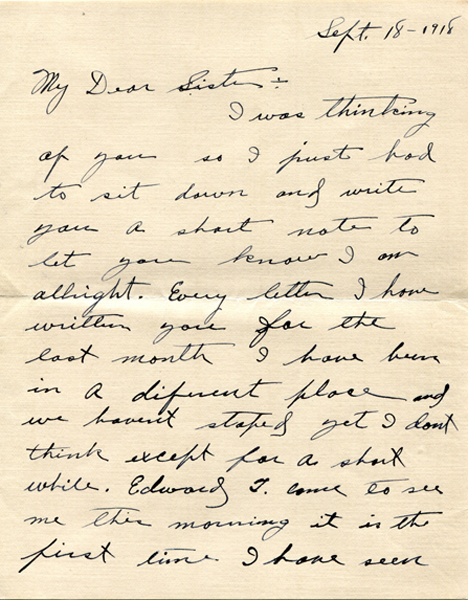 Sept. 18-1918
My Dear Sister :-
I was thinking
of you so I just had
to sit down and write
you a short note to
let you know I am
allright. Every letter I have
written you for the
last month I have been
in a diferent place and
we havent stoped yet I dont
think except for a short
while. Edward T. came to see
me this morning it is the
first time I have seen